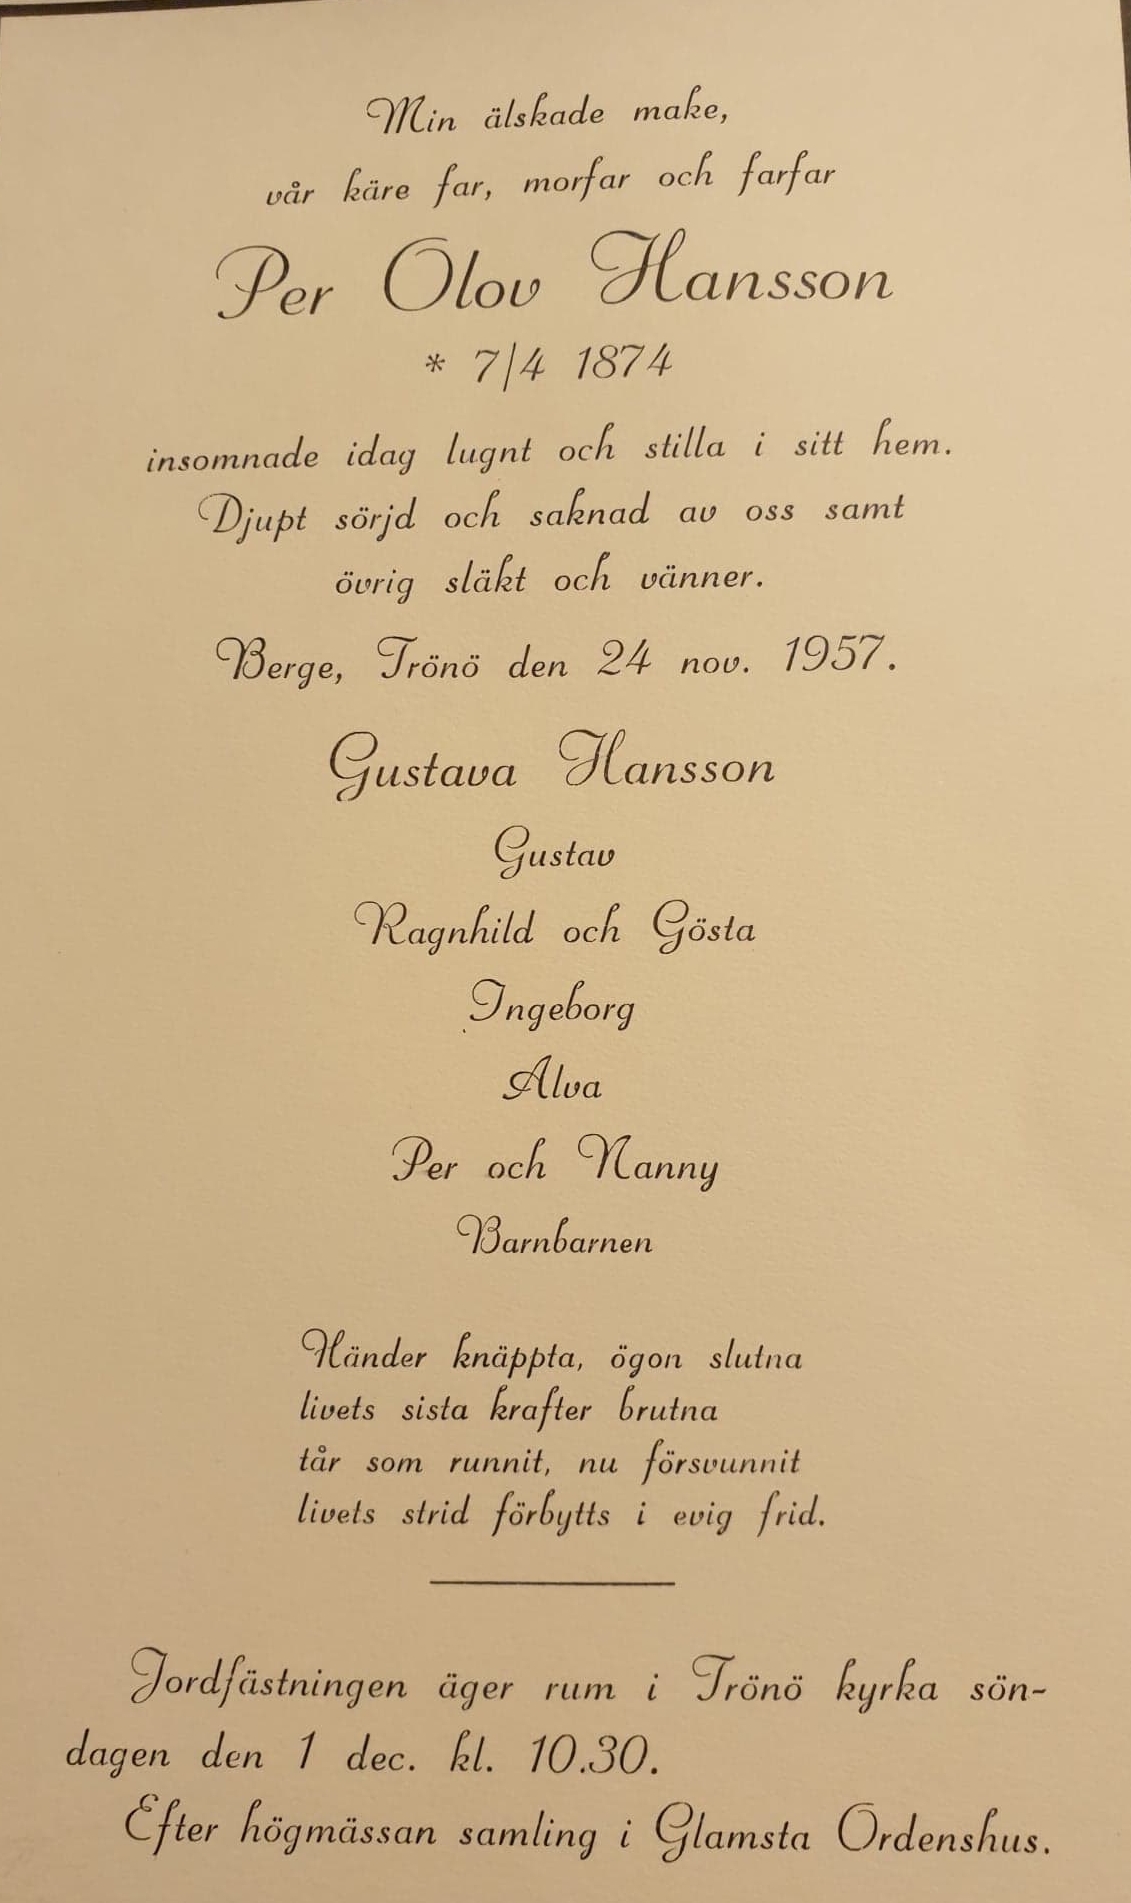 Min älskade make,
vår käre far, morfar och farfar
Per Olov Hansson
* 7/4 1874
insomnade idag lugnt och stilla i sitt hem.
Djupt sörjd och saknad av oss samt
övrig släkt och vänner.
Berge, Trönö den 24 nov. 1957.
Gustava Hansson
Gustav
Ragnhild och Gösta
Ingeborg
Alva
Per och Nanny
Barnbarnen
Händer knäppta, ögon slutna
livets sista krafter brutna
tår som runnit, nu försvunnit
livets strid förbytts i evig frid.
Jordfästningen äger rum i Trönö kyrka sön-
dagen den 1 dec. kl. 10.30.
Efter högmässan samling i Glamsta Ordenshus.